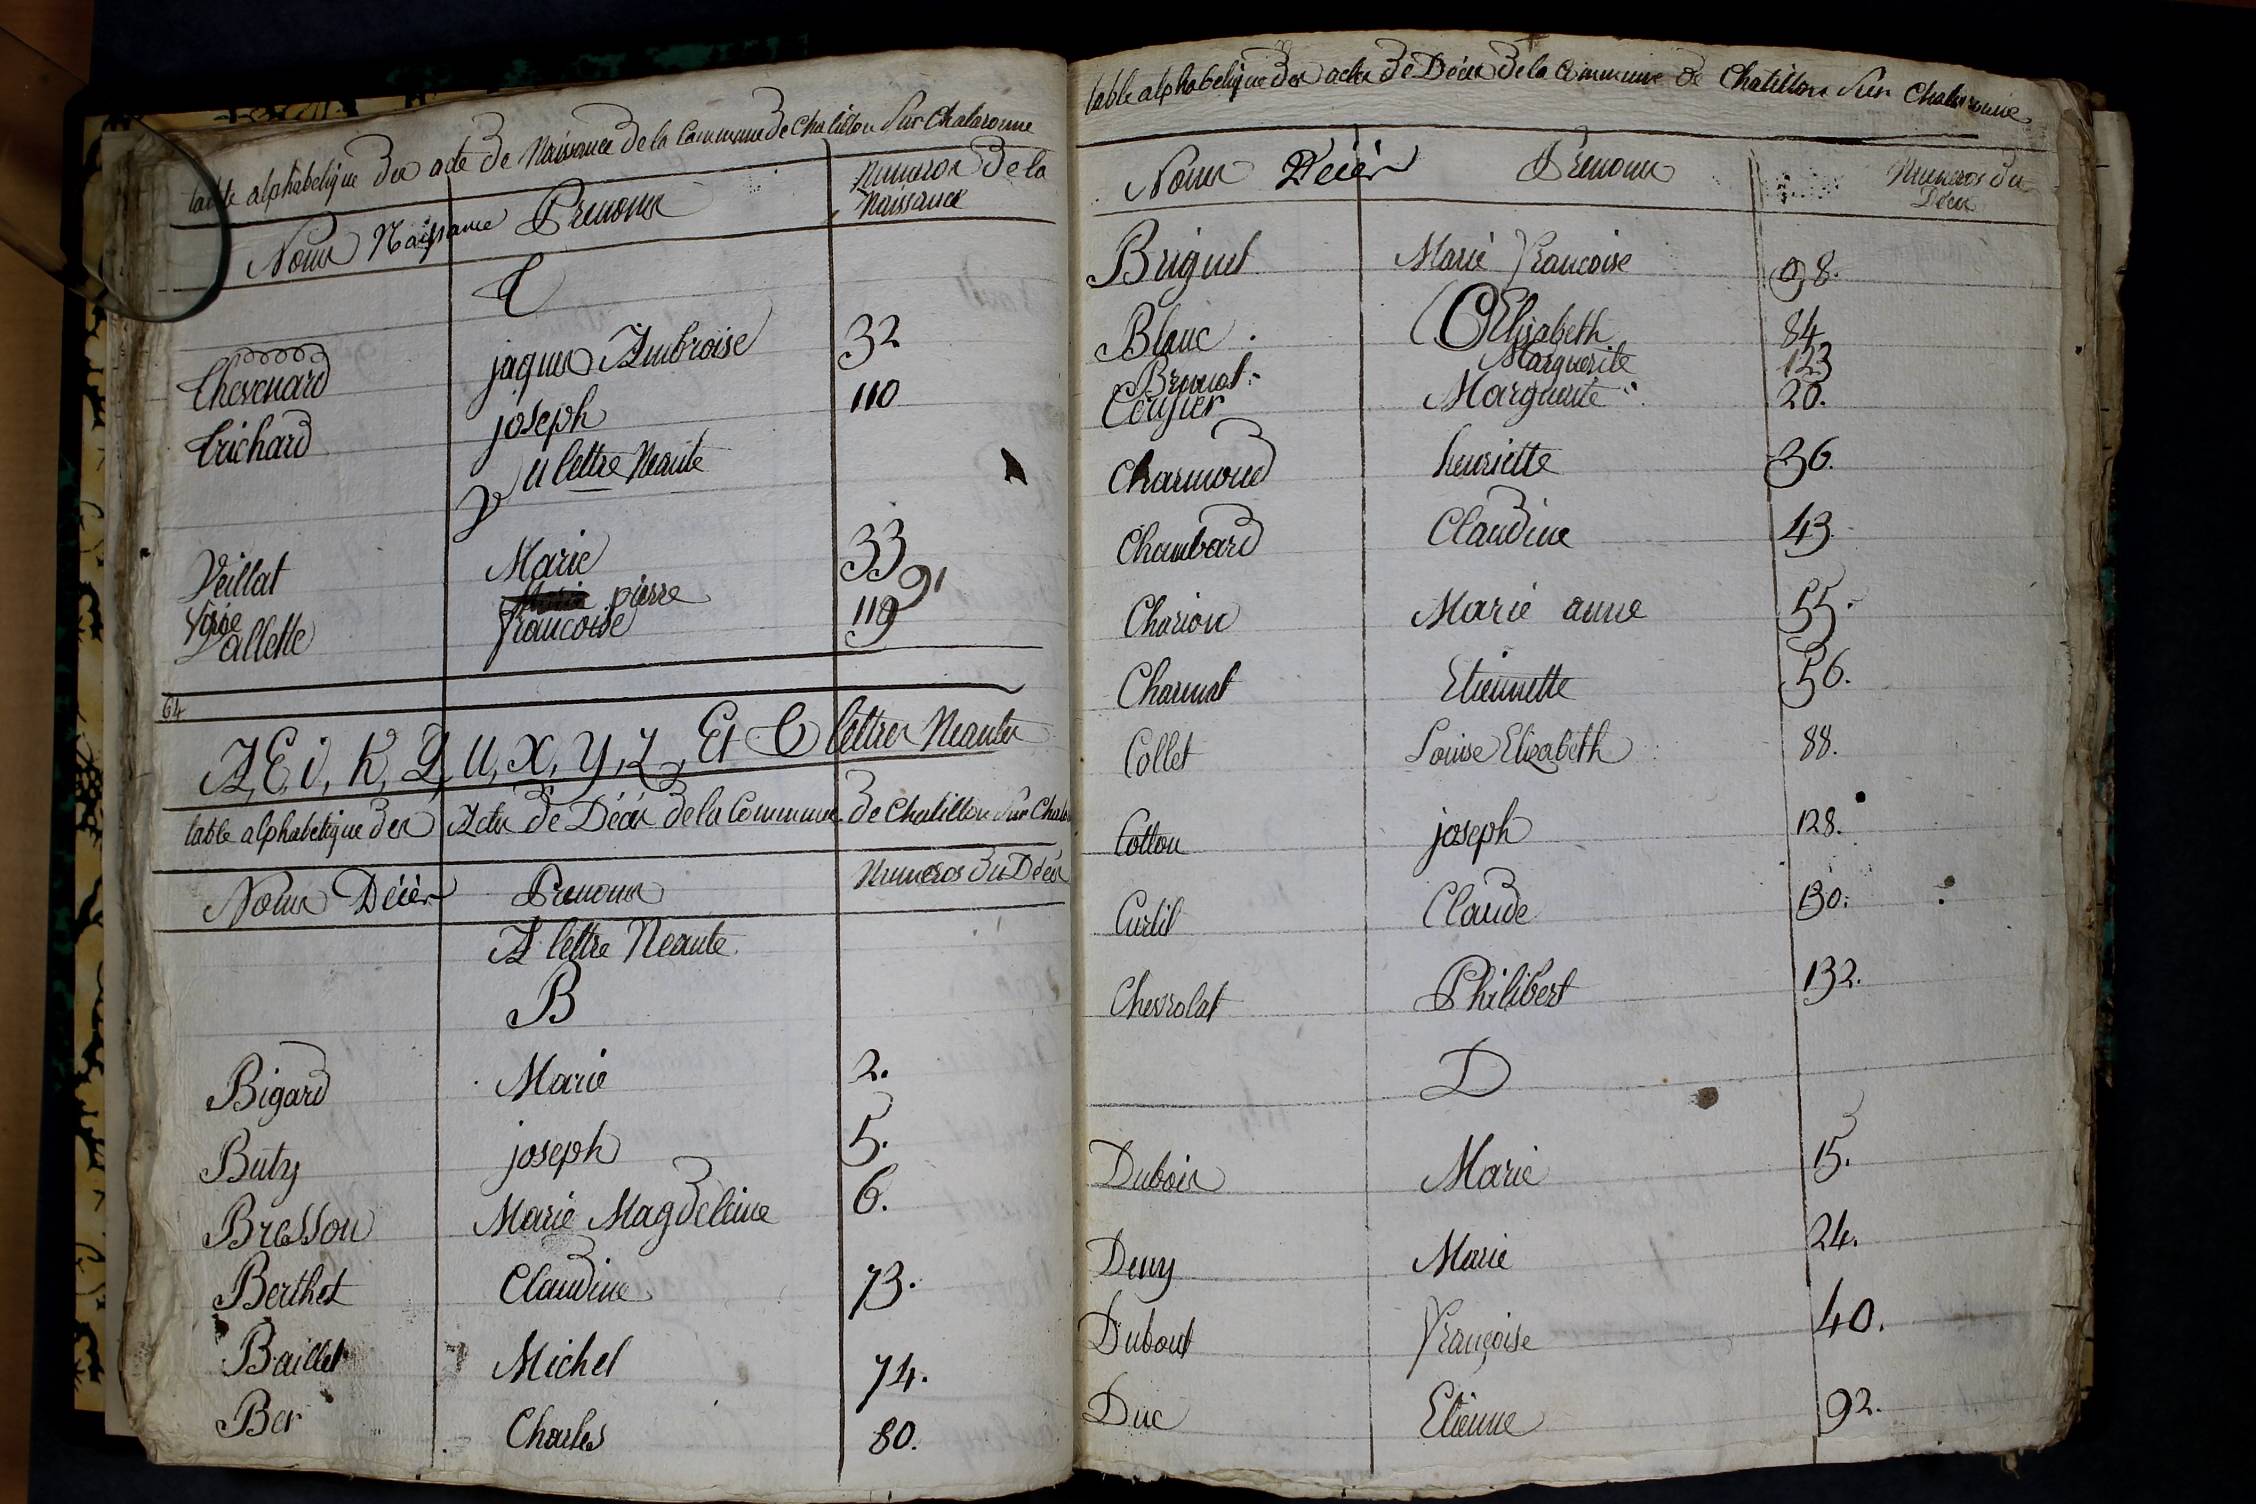 table alphabetique des acte de Naissance de la Commune de Chatillon Sur Chalaronne
Noms Naissance Prenoms Numeros de la Naissance
T
Thevenard jaques Ambroise 32
Trichard joseph 110
U lettre Neante
V
Veillat Marie 33
pierre 91
Vallette francoise 119
64
A, E, i, K, Q, U, X, Y, Z, Et C lettres Neantes
table alphabetique des Actes de Décès de la Commune de Chatillon Sur Chala
Noms Décès Prenoms Numeros du Décès
A lettre Neante.
B
Bigard Marie 2.
Buty joseph 5.
Bresson Marie Magdeleine 6.
Berthet Claudine 73.
Baillet Michel 74.
Ber Charles 80.
table alphabetique des actes de Décès de la Commune de Chatillon Sur Chalaronne
Noms Décès Prenoms Numeros du Décès
Briguet Marie francoise 98.
Blanc. Elisabeth 84
Brunot Marguerite 123
Marguerite 20.
Charmond henriette 36.
Chambard Claudine 43.
Charion Marie anne 55.
Charmat Etiennette 56.
Collet Louise Elizabeth 88.
Cotton joseph 128.
Curtil Claude 130.
Chevrolat Philibert 132.
D
Dubois Marie 15.
Deny Marie 24.
Dubout françoise 40.
Duc Etienne 92.